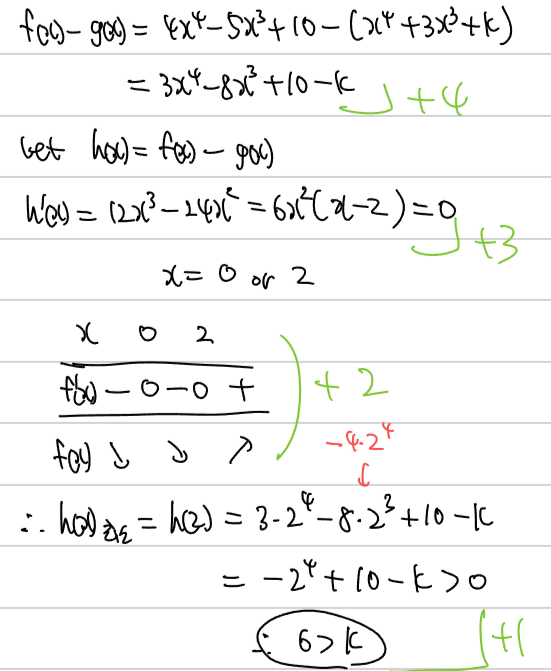 f(x)-g(x) = 4x⁴-5x³+10-(x⁴+3x³+k)
= 3x⁴-8x³+10-k +4
let h(x)=f(x)-g(x)
h'(x) = 12x³-24x² = 6x²(x-2)=0 +3
x = 0 or 2
x 0 2
f'(x) - 0 - 0 + +2
f(x) ↘ ↘ ↗ -4·2⁴
∴ h(x) = h(2) = 3·2⁴-8·2³+10-k
= -2⁴+10-k>0
∴ 6>k +1